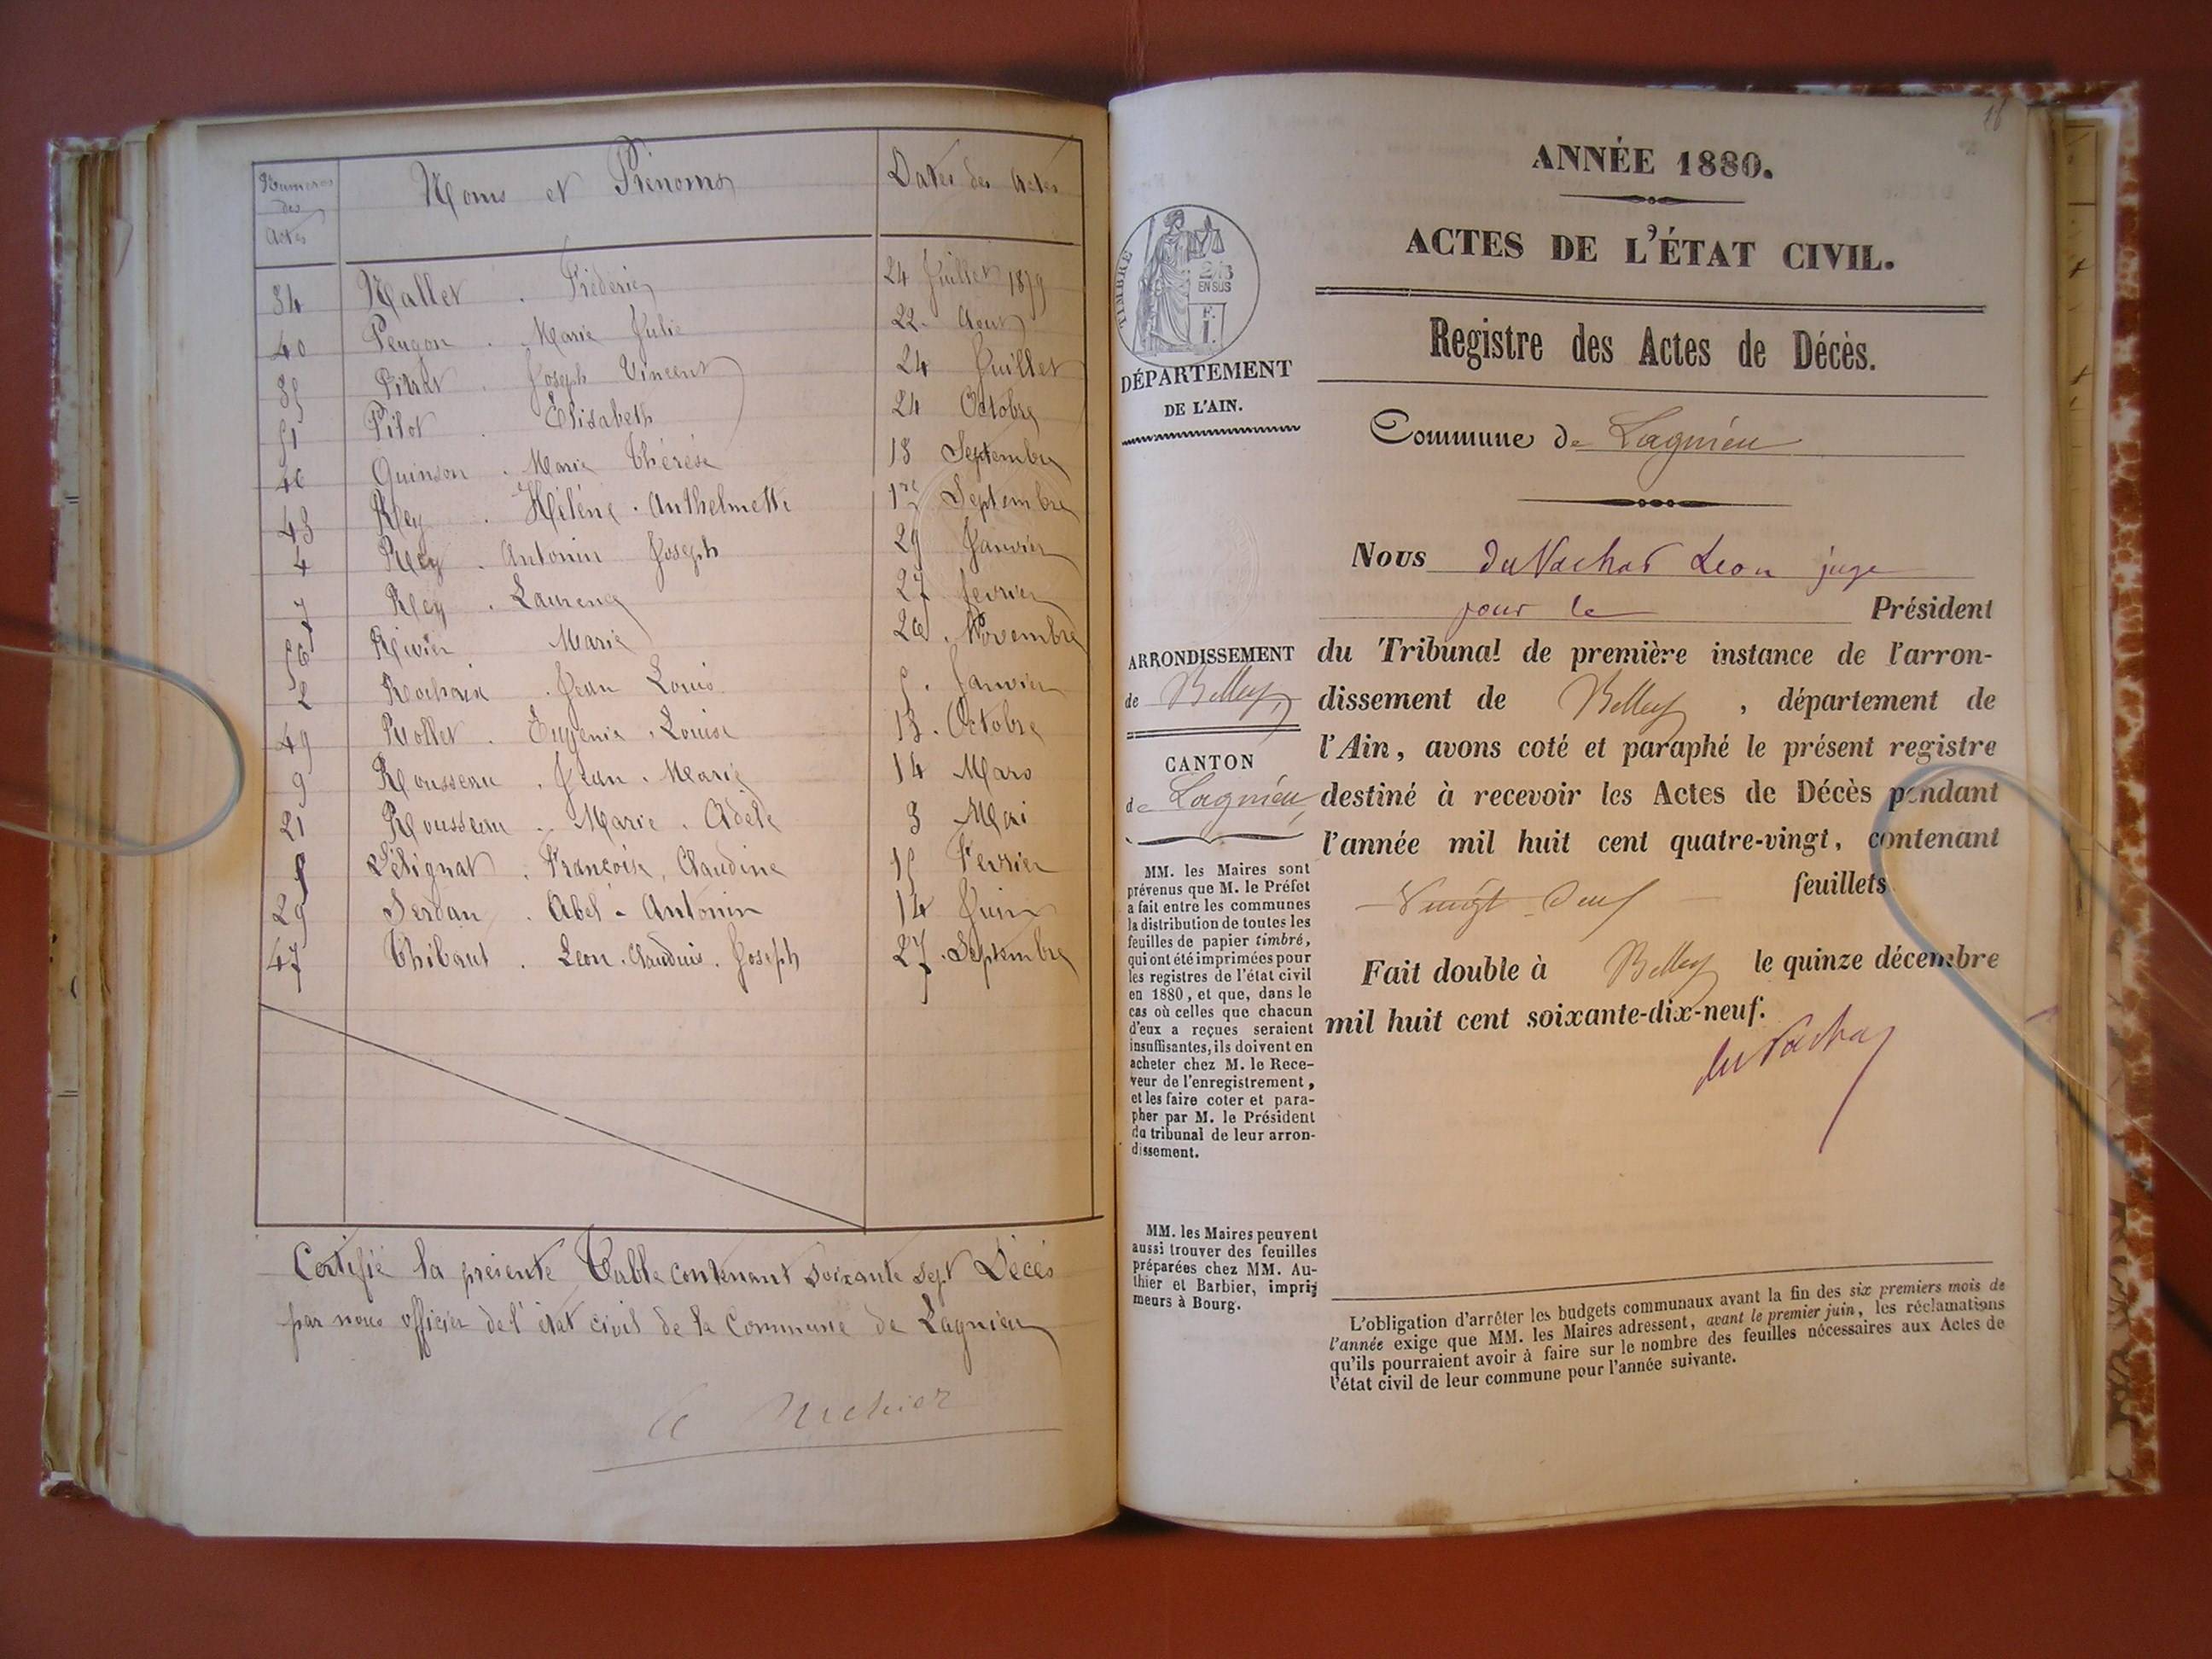 Numeros des Actes
Noms et Prénoms
Dates des Actes
34 Mallet . Fréderic 24 Juillet 1879
40 Peugon . Marie Julie 22 Aout
35 Joseph Vincent 24 Juillet
51 Pilot . Elisabeth 24 Octobre
46 Quinson . Marie Thérèse 18 Septembre
43 Rey . Hélène . Anthelmette 1er Septembre
4 Rey . Antonin Joseph 29 Janvier
7 Rey . Laurence 27 fevrier
56 Rivier Marie 26 . Novembre
2 Rochaix . Jean Louis 5 . Janvier
49 Rollet . Eugenie . Louise 13 . Octobre
9 Rousseau . Jean . Marie 14 Mars
21 Rousseau . Marie . Adèle 3 Mai
5 Sétignat . Françoise, Claudine 15 Fevrier
29 Serdan . Abel - Antonin 14 Juin
47 Thibaut . Leon . Claudius . Joseph 27 . Septembre
Certifié la présente Table contenant soixante sept Décès
par nous officier de l'état civil de la Commune de Lagnieu
18
ANNÉE 1880.
ACTES DE L'ÉTAT CIVIL.
Registre des Actes de Décès.
TIMBRE
2/10
EN SUS
F.
1.
DÉPARTEMENT
DE L'AIN.
Commune de Lagnieu
Nous du Vachat Leon juge
pour le Président
du Tribunal de première instance de l'arron-
dissement de Belley, département de
l'Ain, avons coté et paraphé le présent registre
destiné à recevoir les Actes de Décès pendant
l'année mil huit cent quatre-vingt, contenant
feuillets
Fait double à Belley le quinze décembre
mil huit cent soixante-dix-neuf.
du Vachat
ARRONDISSEMENT
de Belley
CANTON
de Lagnieu
MM. les Maires sont
prévenus que M. le Préfet
a fait entre les communes
la distribution de toutes les
feuilles de papier timbré,
qui ont été imprimées pour
les registres de l'état civil
en 1880, et que, dans le
cas où celles que chacun
d'eux a reçues seraient
insuffisantes, ils doivent en
acheter chez M. le Rece-
veur de l'enregistrement,
et les faire coter et para-
pher par M. le Président
du tribunal de leur arron-
dissement.
MM. les Maires peuvent
aussi trouver des feuilles
préparées chez MM. Au-
thier et Barbier, impri-
meurs à Bourg.
L'obligation d'arrêter les budgets communaux avant la fin des six premiers mois de
l'année exige que MM. les Maires adressent, avant le premier juin, les réclamations
qu'ils pourraient avoir à faire sur le nombre des feuilles nécessaires aux Actes de
l'état civil de leur commune pour l'année suivante.